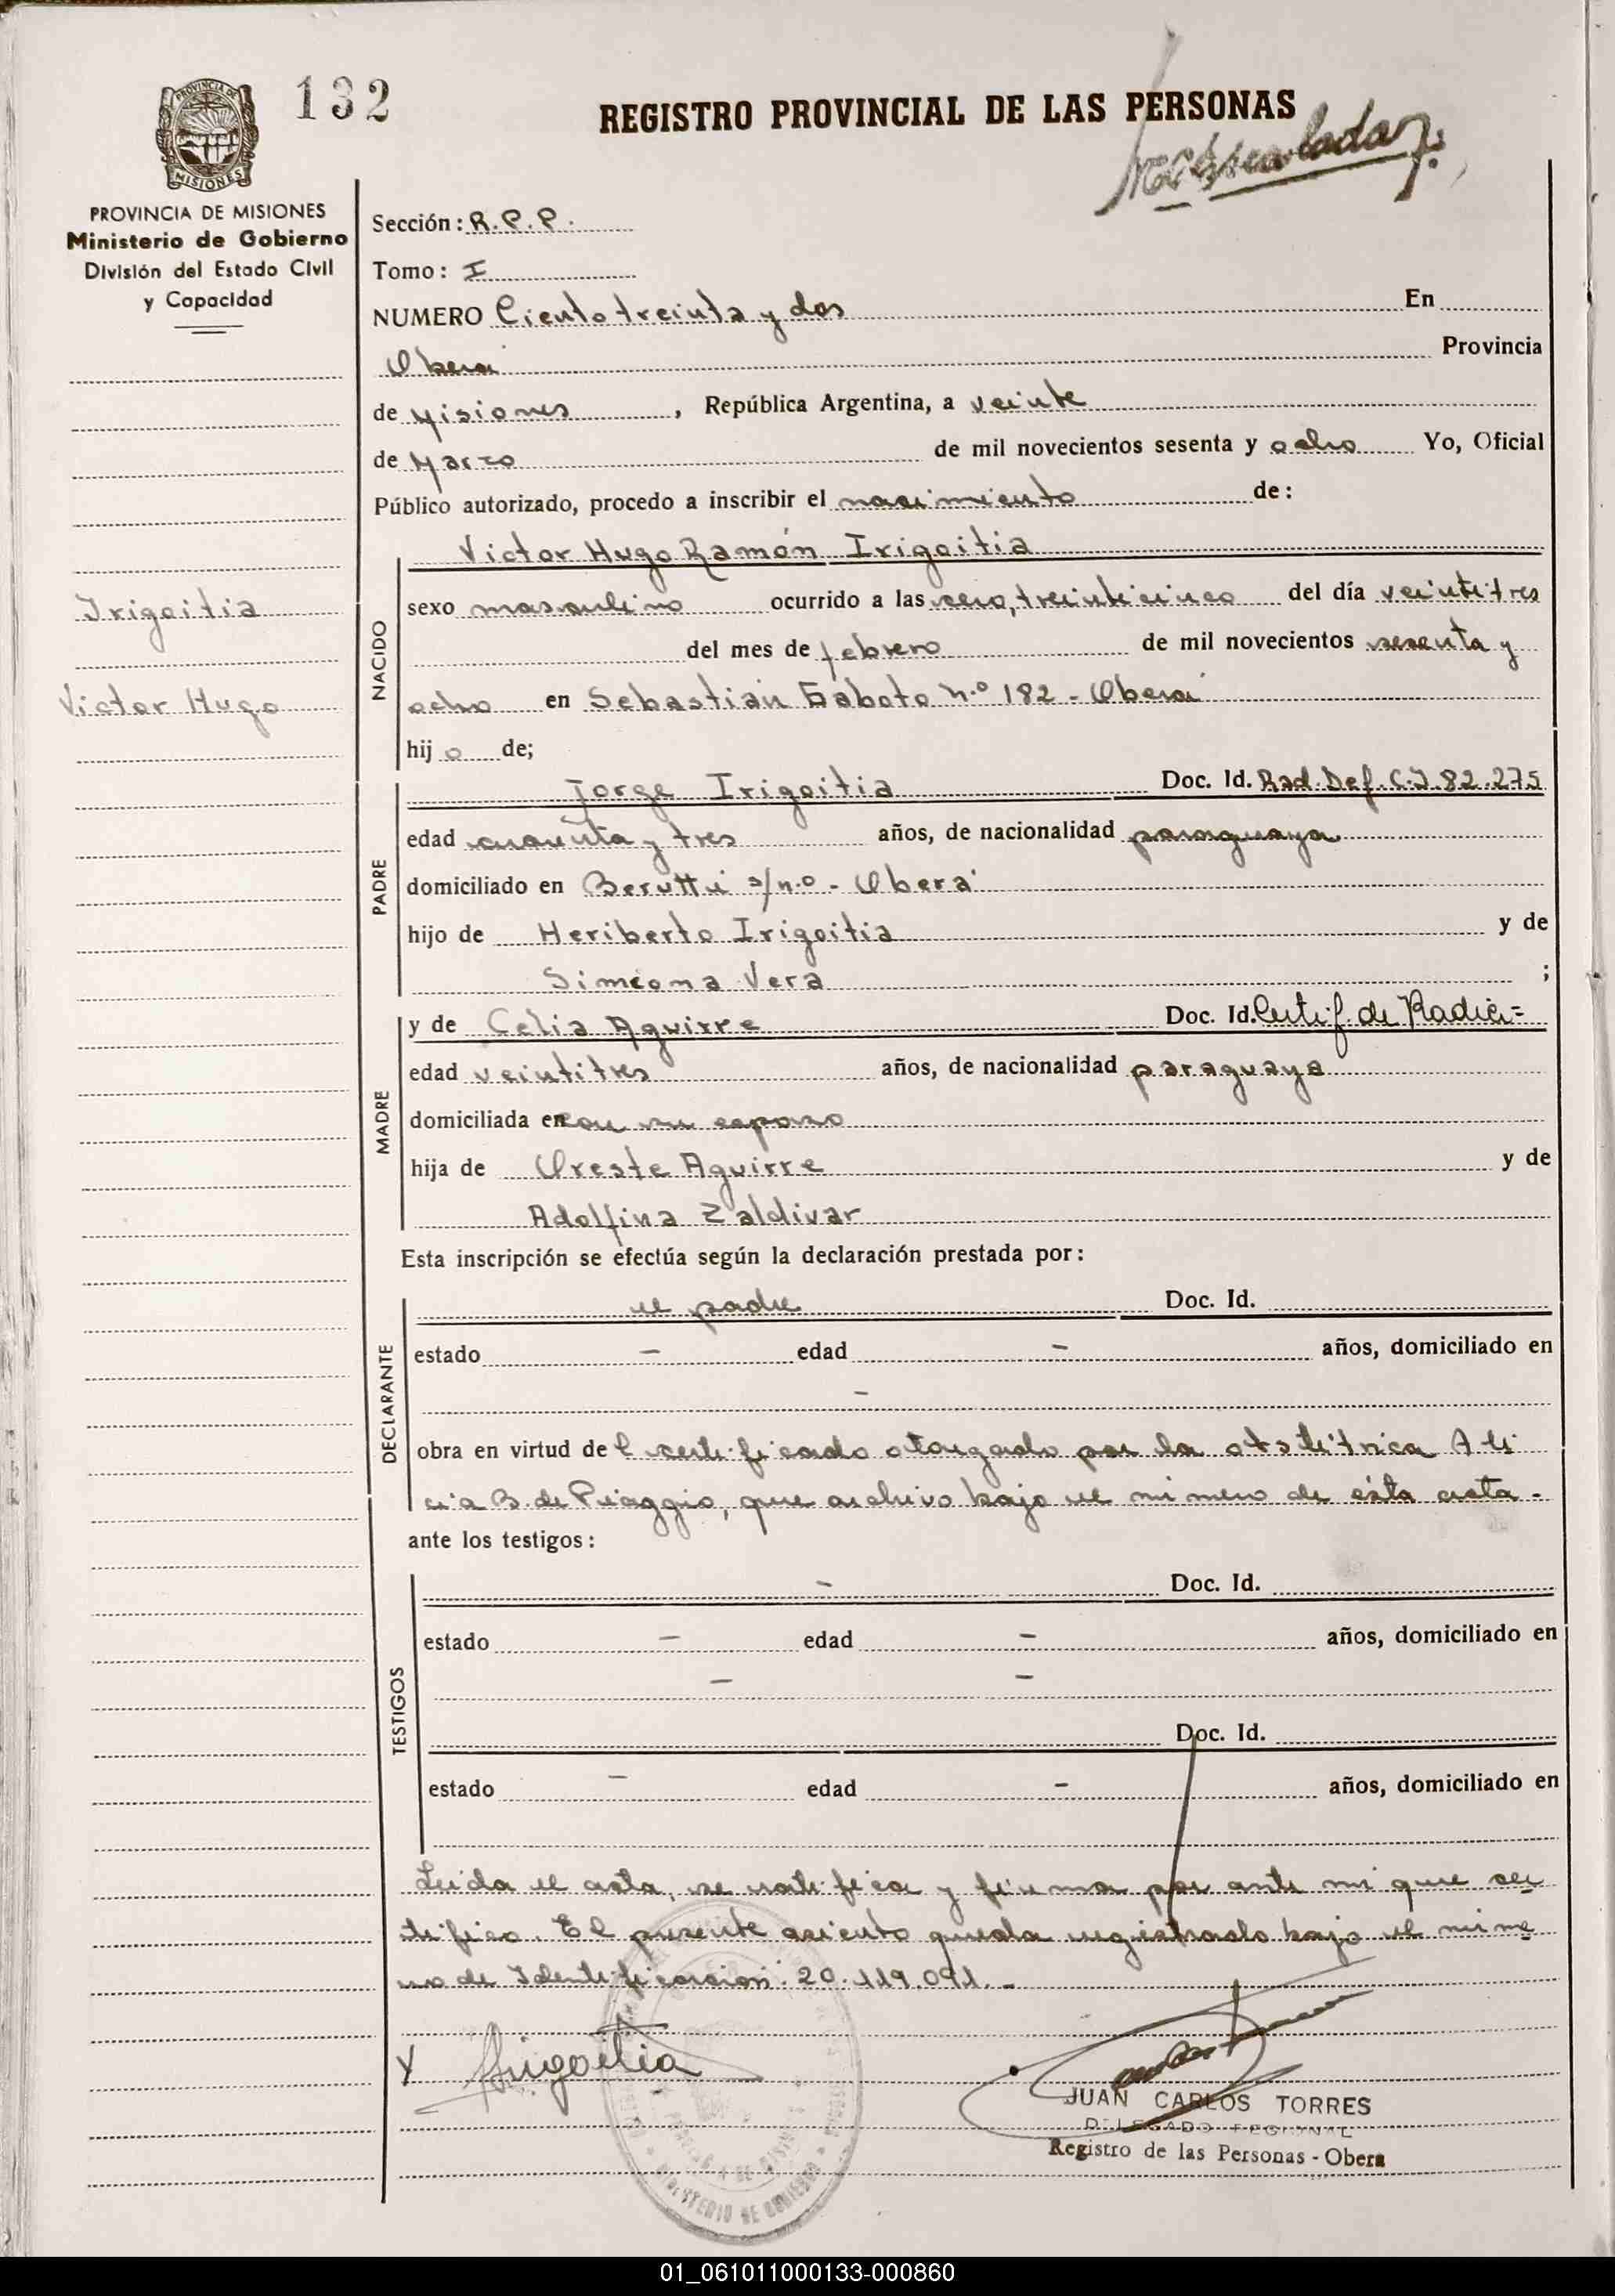 132
REGISTRO PROVINCIAL DE LAS PERSONAS
PROVINCIA DE MISIONES
Ministerio de Gobierno
División del Estado Civil
y Capacidad
Sección: R.P.P.
Tomo: I
NUMERO Ciento treinta y dos En
Oberá Provincia
de Misiones, República Argentina, a veinte
de Marzo de mil novecientos sesenta y ocho Yo, Oficial
Público autorizado, procedo a inscribir el nacimiento de:
Irigoitia
Victor Hugo
NACIDO
Victor Hugo Ramón Irigoitia
sexo masculino ocurrido a las cero, treinticinco del día veintitres
del mes de febrero de mil novecientos sesenta y
ocho en Sebastián Gaboto N.º 182 - Oberá
hijo de;
PADRE
Jorge Irigoitia Doc. Id. Rad. Def. C.I. 82.275
edad cuarenta y tres años, de nacionalidad paraguaya
domiciliado en Berutti s/n.º - Oberá
hijo de Heriberto Irigoitia y de
Simeona Vera ;
MADRE
y de Celia Aguirre Doc. Id. Certif. de Radic=
edad veintitres años, de nacionalidad paraguaya
domiciliada en con su esposo
hija de Oreste Aguirre y de
Adolfina Zaldivar
Esta inscripción se efectúa según la declaración prestada por:
DECLARANTE
el padre Doc. Id.
estado - edad - años, domiciliado en
-
obra en virtud del certificado otorgado por la obstétrica Ali
cia B. de Piaggio, que archivo bajo el número de ésta acta.-
ante los testigos:
TESTIGOS
- Doc. Id.
estado - edad - años, domiciliado en
- -
Doc. Id.
estado - edad - años, domiciliado en
Leída el acta, se ratifica y firma por ante mi que cer
tifico. El presente asiento queda registrado bajo el núme
ro de Identificación: 20.119.091.-
Irigoitia
JUAN CARLOS TORRES
DELEGADO REGIONAL
Registro de las Personas - Obera
MINISTERIO DE GOBIERNO
01_061011000133-000860